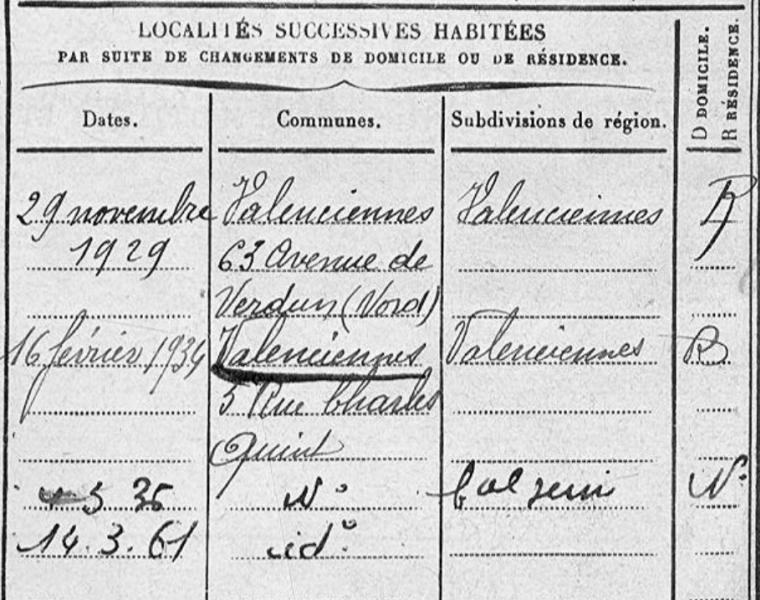 LOCALITÉS SUCCESSIVES HABITÉES
PAR SUITE DE CHANGEMENTS DE DOMICILE OU DE RÉSIDENCE.
D DOMICILE.
R RÉSIDENCE.
Dates. Communes. Subdivisions de région.
29 novembre Valenciennes Valenciennes R
1929 63 Avenue de
Verdun (Nord)
16 février 1934 Valenciennes Valenciennes R
5 Rue Charles
Quint
5 36 N°
14.3.61 id°